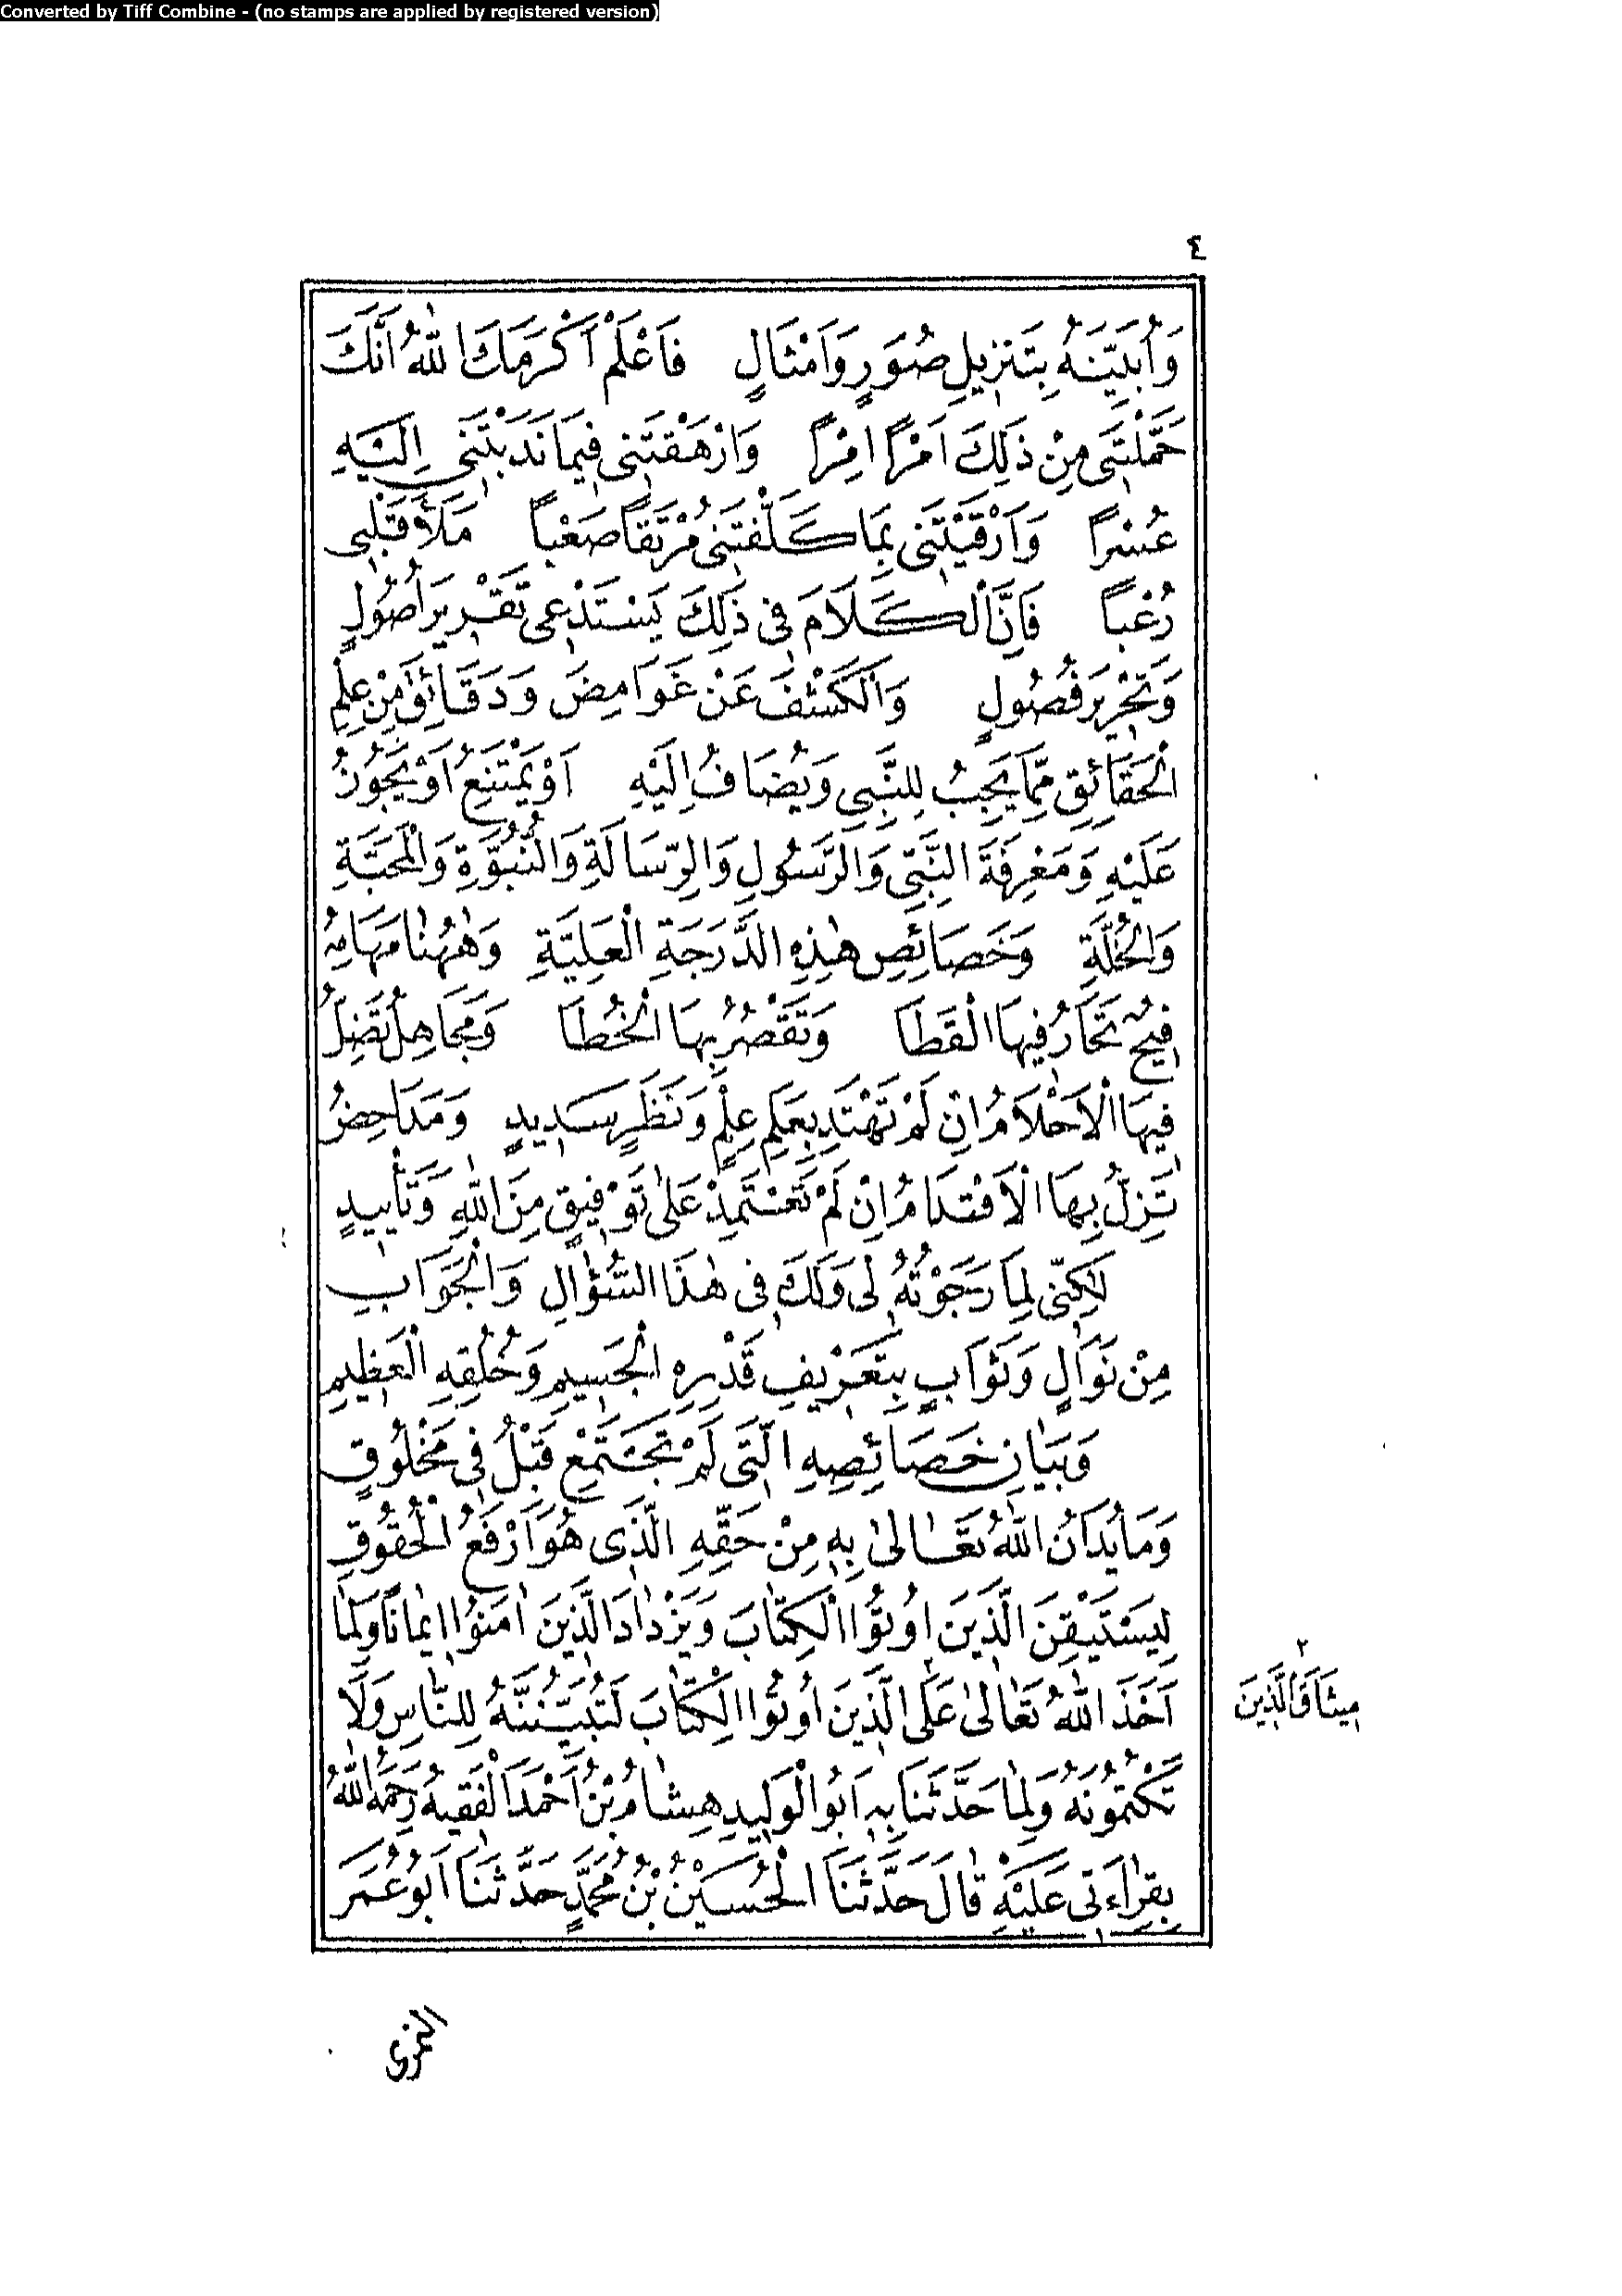 Converted by Tiff Combine - (no stamps are applied by registered version)
٤
وَاُبَيِّنَهُ بِتَنْزِيلِ صُوَرٍ وَاَمْثَالٍ فَاعْلَمْ اَكْرَمَكَ اللّٰهُ اَنَّكَ
حَمَّلْتَنِى مِنْ ذٰلِكَ اَمْرًا اِمْرًا وَاَرْهَقْتَنِى فِيمَا نَدَبْتَنِى اِلَيْهِ
عُسْرًا وَاَرْقَيْتَنِى بِمَا كَلَّفْتَنِى مُرْتَقًا صَعْبًا مَلَأَ قَلْبِى
رُعْبًا فَاِنَّ الْكَلَامَ فِى ذٰلِكَ يَسْتَدْعِى تَقْرِيرَ اُصُولٍ
وَتَحْرِيرَ فُصُولٍ وَالْكَشْفَ عَنْ غَوَامِضَ وَدَقَائِقَ مِنْ عِلْمِ
الْحَقَائِقِ مِمَّا يَجِبُ لِلنَّبِىِّ وَيُضَافُ اِلَيْهِ اَوْ يَمْتَنِعُ اَوْ يَجُوزُ
عَلَيْهِ وَمَعْرِفَةَ النَّبِىِّ وَالرَّسُولِ وَالرِّسَالَةِ وَالنُّبُوَّةِ وَالْمَحَبَّةِ
وَالْخُلَّةِ وَخَصَائِصِ هٰذِهِ الدَّرَجَةِ الْعَلِيَّةِ وَهٰهُنَا مَهَامِهُ
فِيحٌ تَحَارُ فِيهَا الْقَطَا وَتَقْصُرُ بِهَا الْخُطَا وَمَجَاهِلُ تَضِلُّ
فِيهَا الْاَحْلَامُ اِنْ لَمْ تَهْتَدِ بِعَلَمِ عِلْمٍ وَنَظَرٍ سَدِيدٍ وَمَدَاحِضُ
تَزِلُّ بِهَا الْاَقْدَامُ اِنْ لَمْ تَعْتَمِدْ عَلٰى تَوْفِيقٍ مِنَ اللّٰهِ وَتَأْيِيدٍ
لٰكِنِّى لِمَا رَجَوْتُهُ لِى وَلَكَ فِى هٰذَا السُّؤَالِ وَالْجَوَابِ
مِنْ نَوَالٍ وَثَوَابٍ بِتَعْرِيفِ قَدْرِهِ الْجَسِيمِ وَخُلُقِهِ الْعَظِيمِ
وَبَيَانِ خَصَائِصِهِ الَّتِى لَمْ تَجْتَمِعْ قَبْلُ فِى مَخْلُوقٍ
وَمَا يُدَانُ اللّٰهُ تَعَالٰى بِهِ مِنْ حَقِّهِ الَّذِى هُوَ اَرْفَعُ الْحُقُوقِ
لِيَسْتَيْقِنَ الَّذِينَ اُوتُوا الْكِتَابَ وَيَزْدَادَ الَّذِينَ اٰمَنُوا اِيمَانًا وَلِمَا
اَخَذَ اللّٰهُ تَعَالٰى عَلَى ٢ الَّذِينَ اُوتُوا الْكِتَابَ لَتُبَيِّنُنَّهُ لِلنَّاسِ وَلَا
٢
مِيثَاقَ الَّذِينَ
تَكْتُمُونَهُ وَلِمَا حَدَّثَنَا بِهِ اَبُو الْوَلِيدِ هِشَامُ بْنُ اَحْمَدَ الْفَقِيهُ رَحِمَهُ اللّٰهُ
بِقِرَاءَتِى عَلَيْهِ قَالَ حَدَّثَنَا الْحُسَيْنُ بْنُ مُحَمَّدٍ حَدَّثَنَا اَبُو عُمَرَ
النمرى